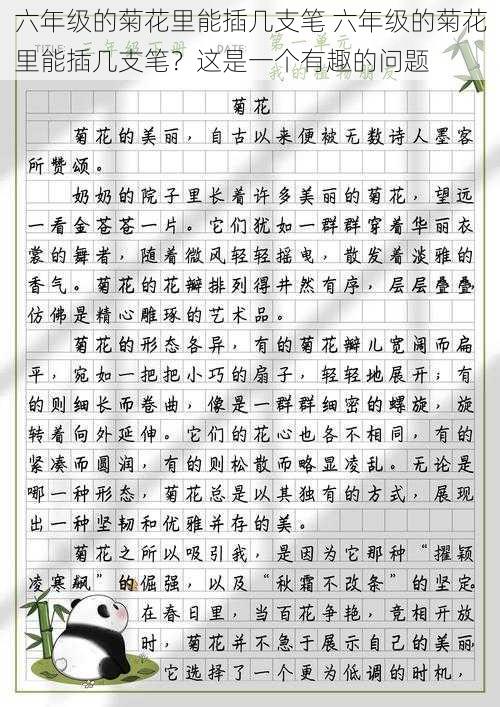 六年级的菊花里能插几支笔 六年级的菊花
里能插几支笔？这是一个有趣的问题
TITLE: 三年级下册 DATE: 第一单元
我的植物朋友
菊花
菊花的美丽，自古以来便被无数诗人墨客
所赞颂。
奶奶的院子里长着许多美丽的菊花，望远
一看金苍苍一片。它们犹如一群群穿着华丽衣
裳的舞者，随着微风轻轻摇曳，散发着淡雅的
香气。菊花的花瓣排列得井然有序，层层叠叠，
仿佛是精心雕琢的艺术品。
菊花的形态各异，有的菊花瓣儿宽阔而扁
平，宛如一把把小巧的扇子，轻轻地展开；有
的则细长而卷曲，像是一群群细密的螺旋，旋
转着向外延伸。它们的花心也各不相同，有的
紧凑而圆润，有的则松散而略显凌乱。无论是
哪一种形态，菊花总是以其独有的方式，展现
出一种坚韧和优雅并存的美。
菊花之所以吸引我，是因为它那种“擢颖
凌寒飙”的倔强，以及“秋霜不改条”的坚定。
在春日里，当百花争艳，竞相开放
时，菊花并不急于展示自己的美丽
它选择了一个更为低调的时机，